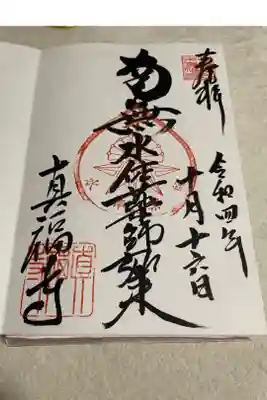 奉拝
令和四年
十月十六日
南無水使薬師如来
真福寺